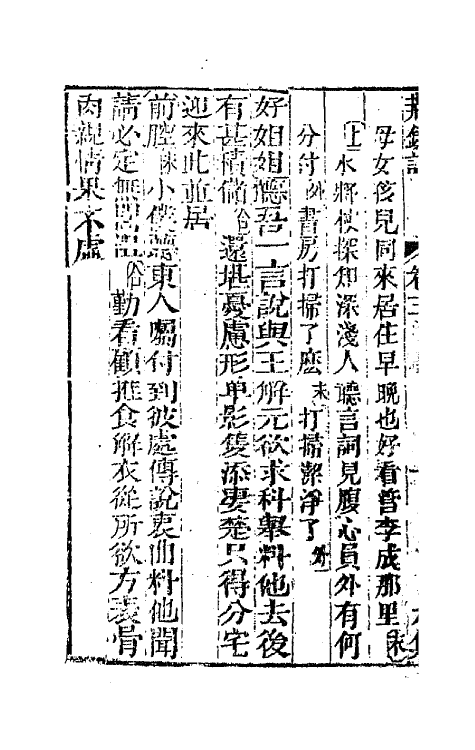 荆釵記 卷三
母女孩兒同來居住早晚也好看管李成那里末
上水將杖探知深淺人聽言詞見腹心員外有何
分付外書房打掃了麽末打掃潔淨了外
好姐姐聽吾一言說與王解元欲求科舉料他去後
有甚積儲合還堪憂慮形單影隻添凄楚只得分宅
迎來此並居
前腔末小僕聽東人囑付到彼處傳說衷曲料他聞
請必定無間阻合勤看顧推食解衣從所欲方表骨
肉親情果不虛